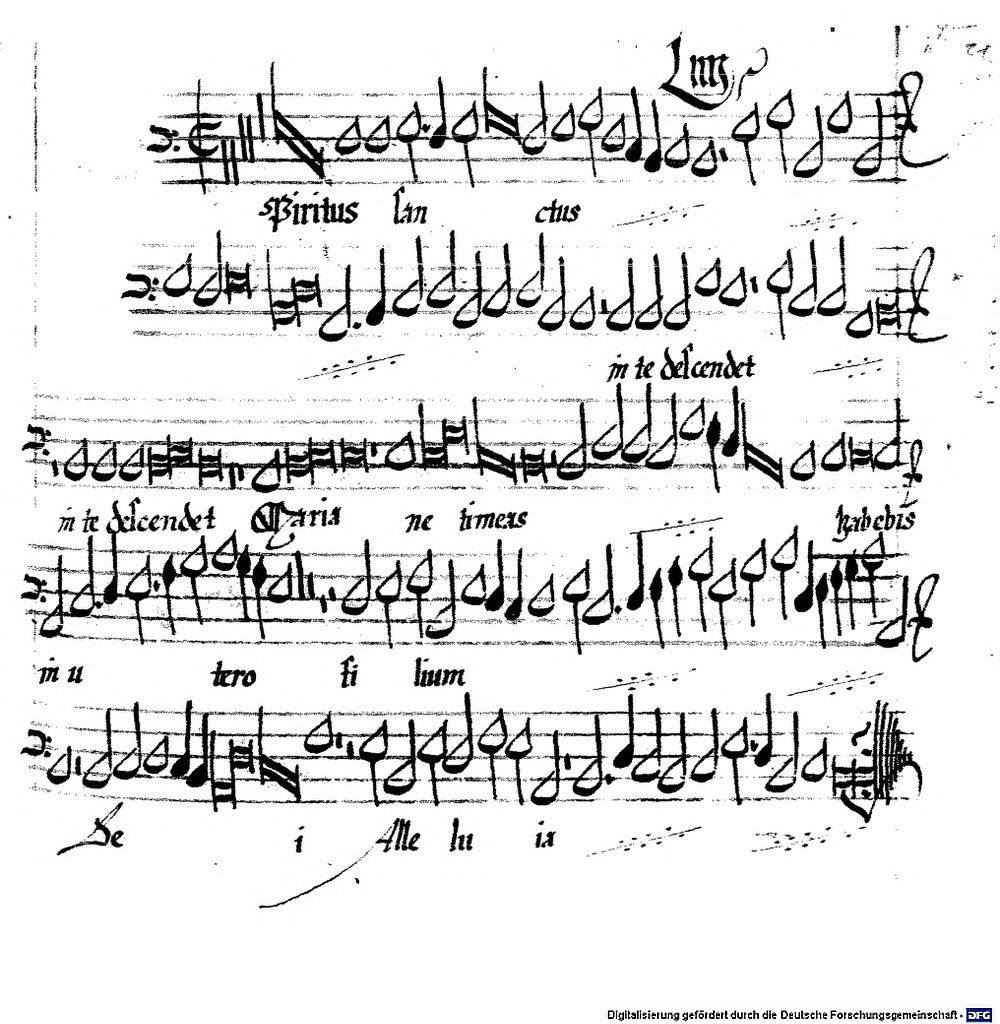 Spiritus san ctus
in te descendet
in te descendet Maria ne timeas habebis
in u tero fi lium
De i Alle lu ia
Digitalisierung gefördert durch die Deutsche Forschungsgemeinschaft - DFG